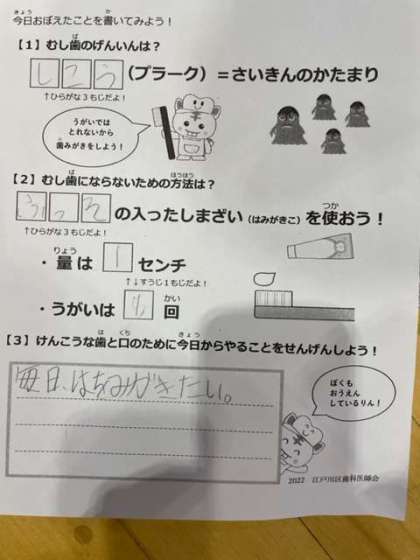 今日おぼえたことを書いてみよう！
【1】むし歯のげんいんは？
しこう（プラーク）＝さいきんのかたまり
↑ひらがな3もじだよ！
うがいでは
とれないから
歯みがきをしよう！
【2】むし歯にならないための方法は？
ふっその入ったしまざい（はみがきこ）を使おう！
↑ひらがな3もじだよ！
・量は1センチ
↑↓すうじ1もじだよ！
・うがいは 回
【3】けんこうな歯と口のために今日からやることをせんげんしよう！
毎日、はちみがきたい。
ぼくも
おうえん
しているりん！
2022 江戸川区歯科医師会